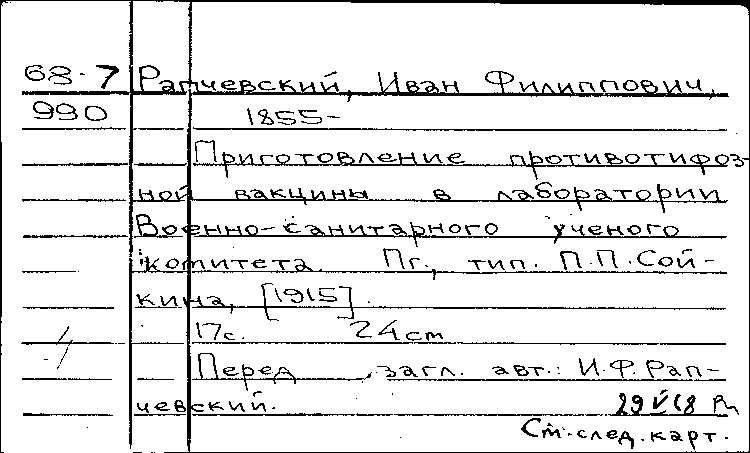 68-7 Рапчевский, Иван Филиппович,
990 1855-
Приготовление противотифоз-
ной вакцины в лаборатории
Военно-санитарного ученого
комитета. Пг., тип. П.П.Сой-
кина, [1915].
17с. 24cm
Перед загл. авт.: И.Ф.Рап-
чевский.
29 V 68
См.след.карт.